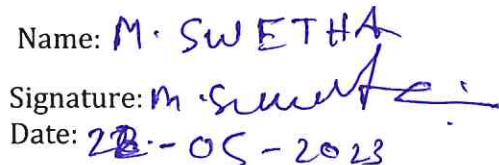 Name: M. SWETHA
Signature: M. Swetha
Date: -05-2023